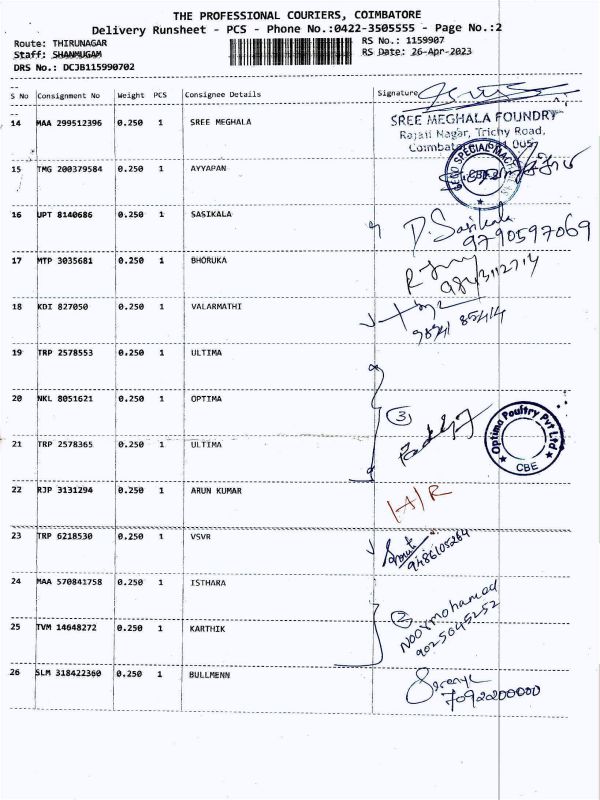 THE PROFESSIONAL COURIERS, COIMBATORE
Delivery Runsheet - PCS - Phone No.:0422-3505555 - Page No.:2
Route: THIRUNAGAR RS No.: 1159907
Staff: SHANMUGAM RS Date: 26-Apr-2023
DRS No.: DCJB115990702
S No Consignment No Weight PCS Consignee Details Signature
14 MAA 299512396 0.250 1 SREE MEGHALA SREE MEGHALA FOUNDRY
Rajaji Nagar, Trichy Road,
15 TMG 200379584 0.250 1 AYYAPAN CBE
16 UPT 8140686 0.250 1 SASIKALA D. Sasikala
9790597069
17 MTP 3035681 0.250 1 BHORUKA
9843112714
18 KDI 827050 0.250 1 VALARMATHI
19 TRP 2578553 0.250 1 ULTIMA
20 NKL 8051621 0.250 1 OPTIMA 3
Optima Poultry Pvt Ltd
CBE
21 TRP 2578365 0.250 1 ULTIMA
22 RJP 3131294 0.250 1 ARUN KUMAR A/R
23 TRP 6218530 0.250 1 VSVR
9486105264
24 MAA 570841758 0.250 1 ISTHARA
25 TVM 14648272 0.250 1 KARTHIK 2 Noormohamed
9025645252
26 SLM 318422360 0.250 1 BULLMENN Saranya
7092200000